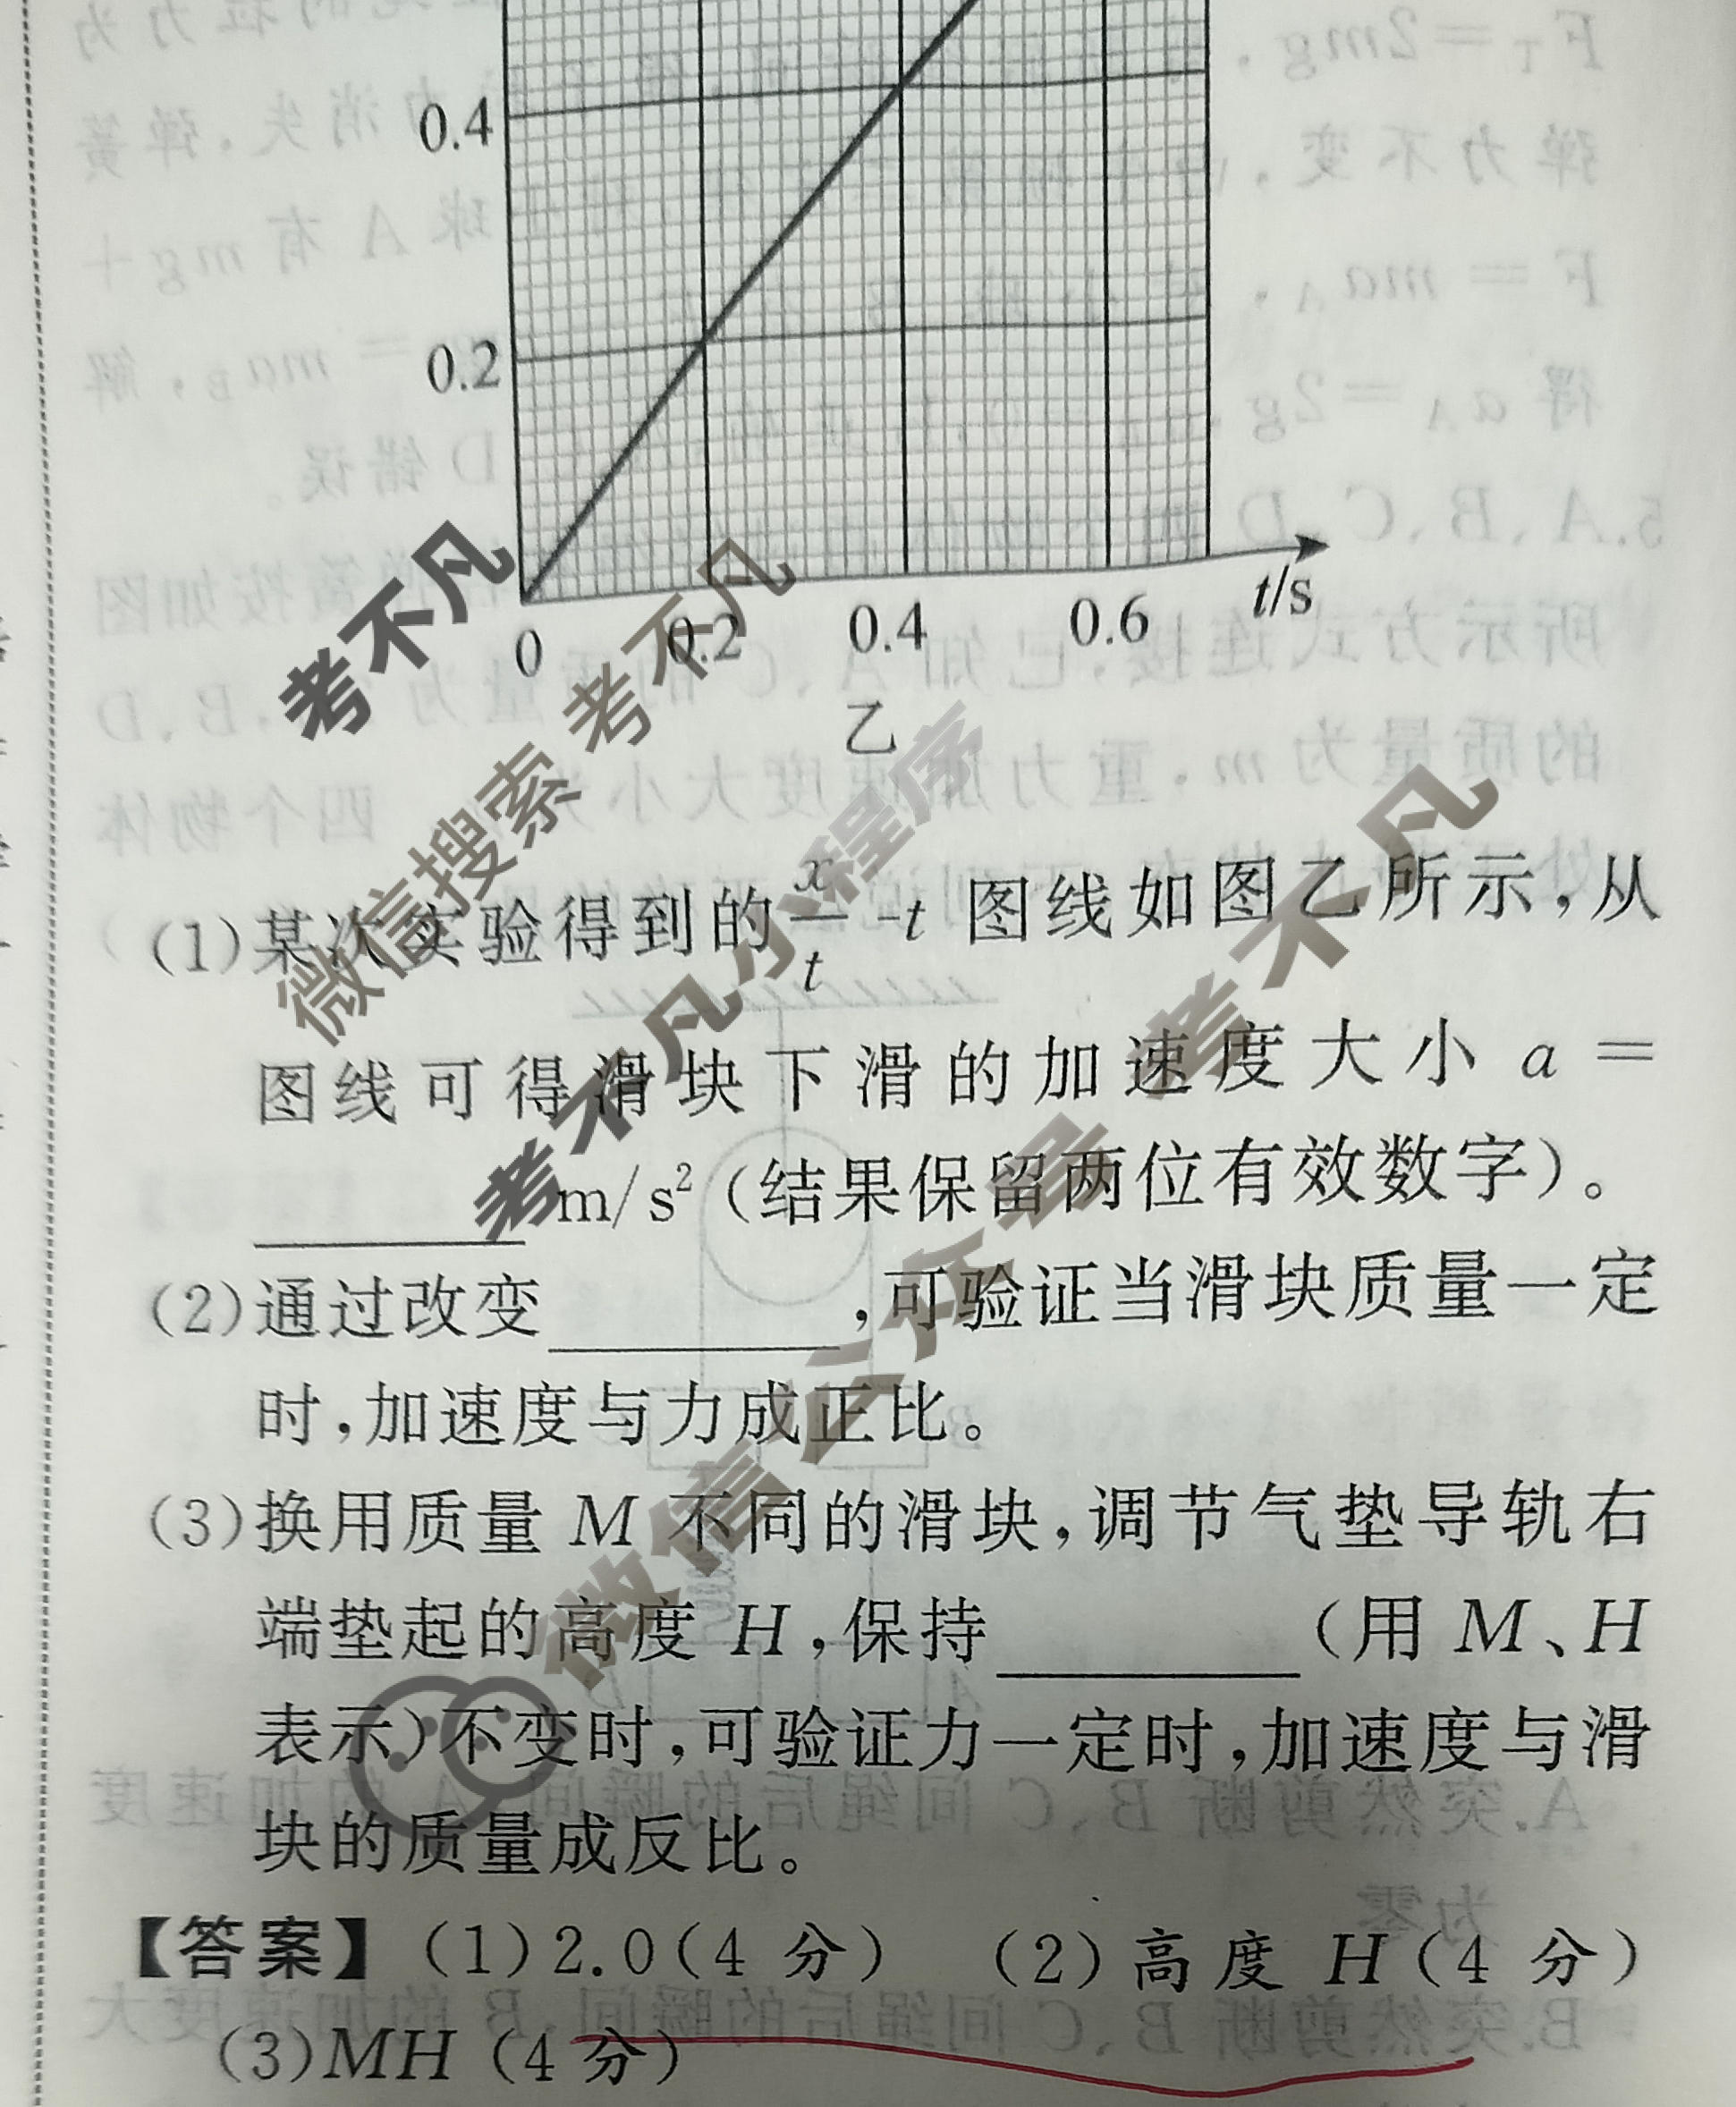 0.4
0.2
0 0.2 0.4 0.6 t/s
乙
(1)某次实验得到的x/t-t图线如图乙所示,从
图线可得滑块下滑的加速度大小a=
______m/s²(结果保留两位有效数字)。
(2)通过改变______,可验证当滑块质量一定
时,加速度与力成正比。
(3)换用质量M不同的滑块,调节气垫导轨右
端垫起的高度H,保持______(用M、H
表示)不变时,可验证力一定时,加速度与滑
块的质量成反比。
【答案】(1)2.0(4分) (2)高度H(4分)
(3)MH(4分)
考不凡
微信搜索 考不凡
考不凡小程序
微信公众号 考不凡